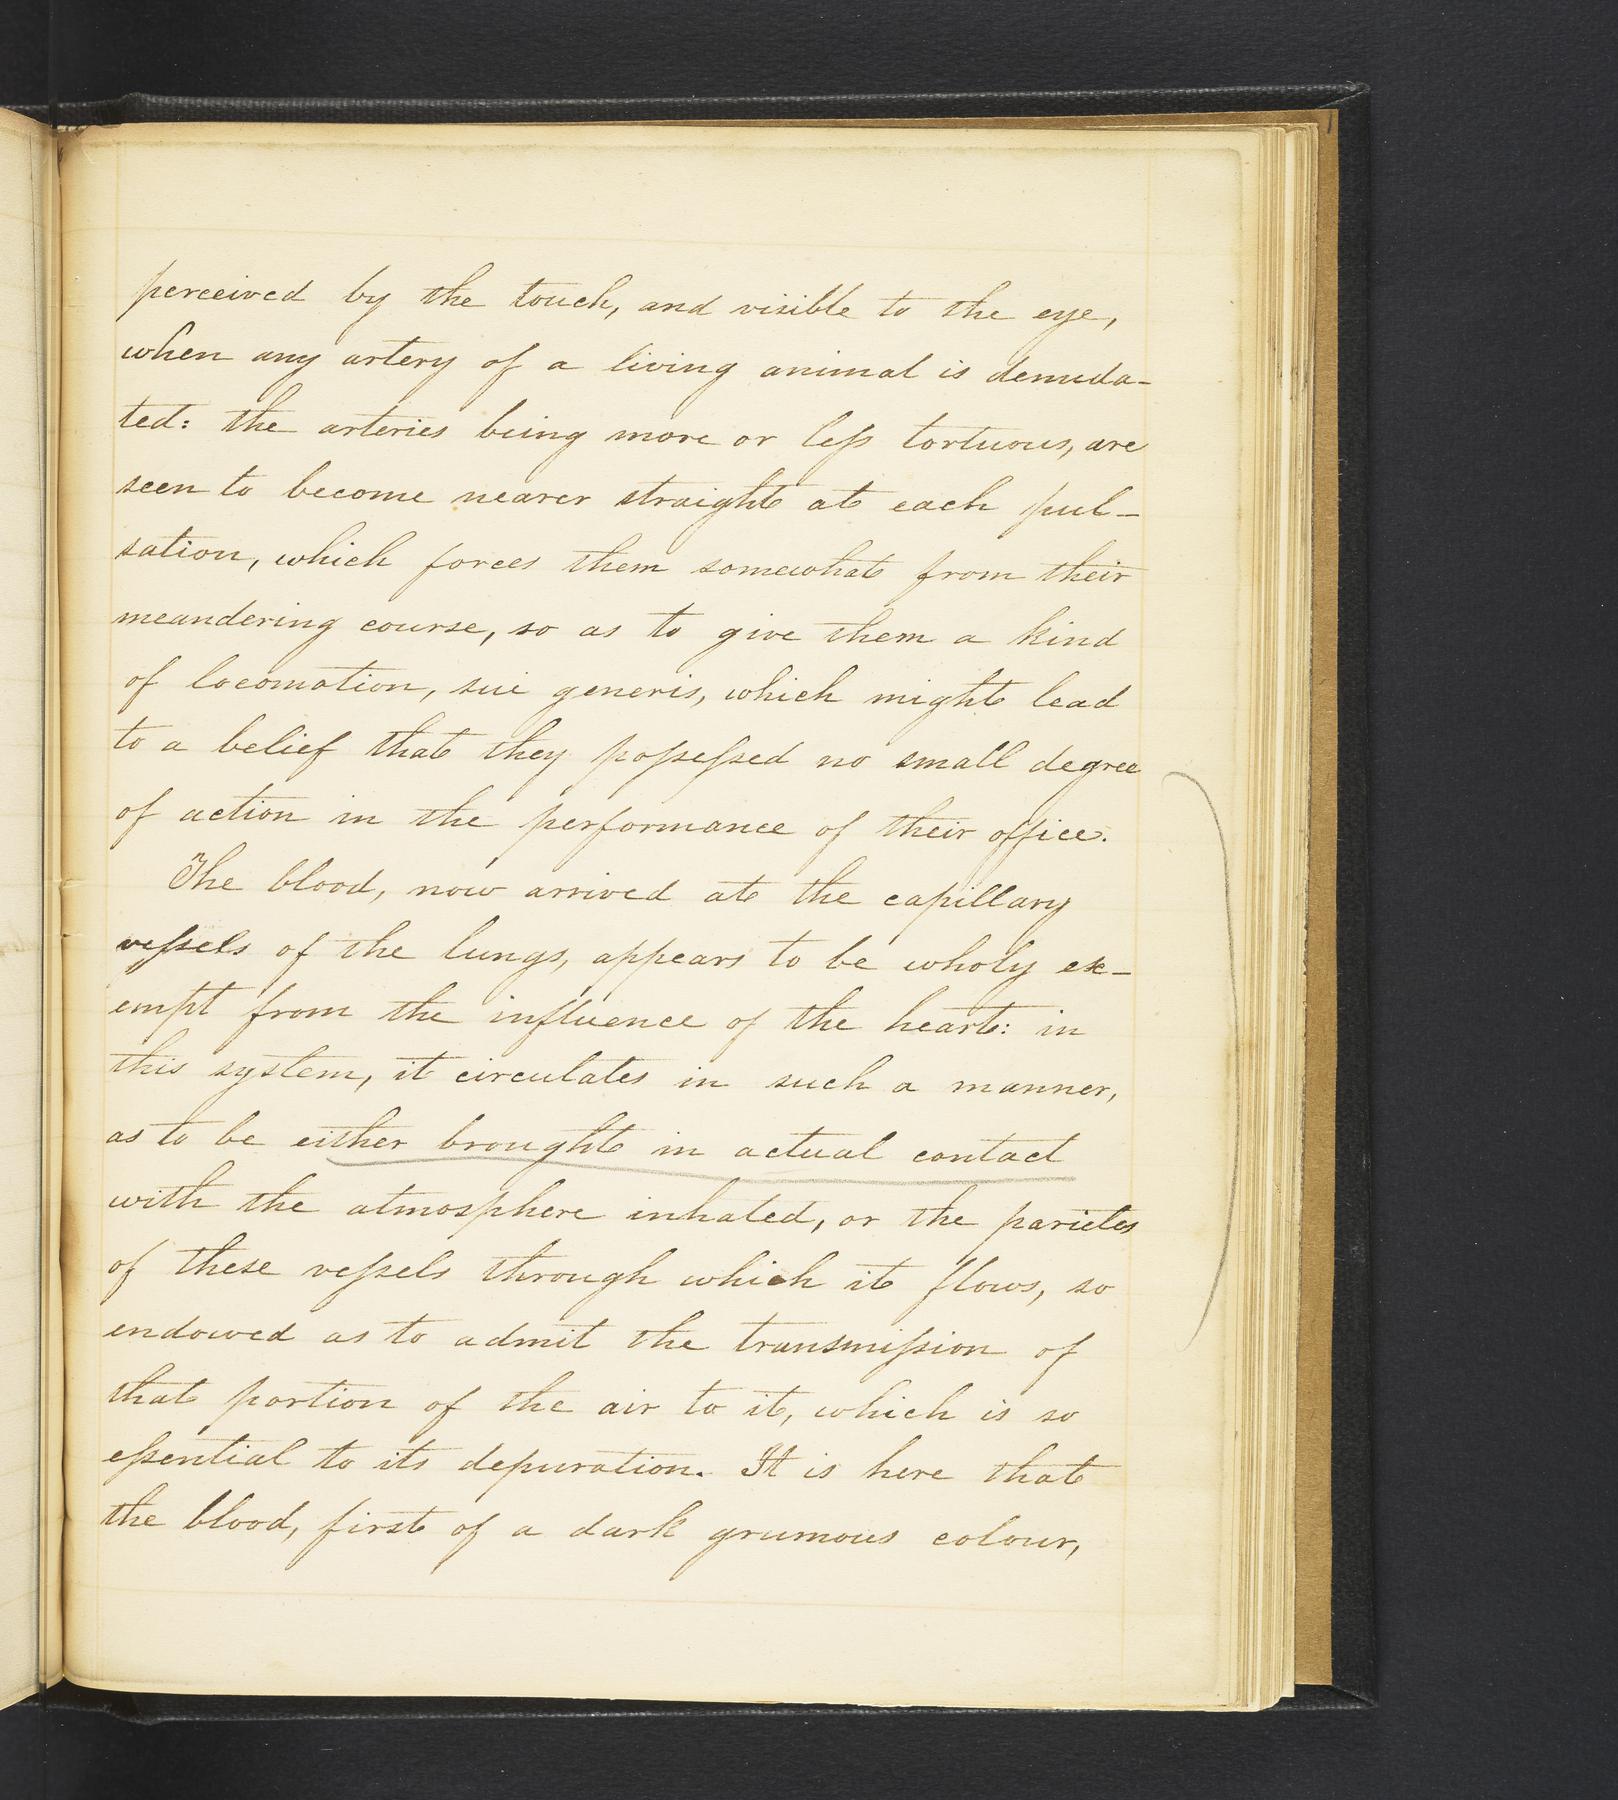 perceived by the touch, and visible to the eye,
when any artery of a living animal is denuda-
ted: the arteries being more or less tortuous, are
seen to become nearer straight at each pul-
sation, which forces them somewhat from their
meandering course, so as to give them a kind
of locomotion, sui generis, which might lead
to a belief that they possessed no small degree
of action in the performance of their office.
The blood, now arrived at the capillary
vessels of the lungs, appears to be wholy ex-
empt from the influence of the heart: in
this system, it circulates in such a manner,
as to be either brought in actual contact
with the atmosphere inhaled, or the parietes
of these vessels through which it flows, so
endowed as to admit the transmission of
that portion of the air to it, which is so
essential to its depuration. It is here that
the blood, first of a dark grumous colour,